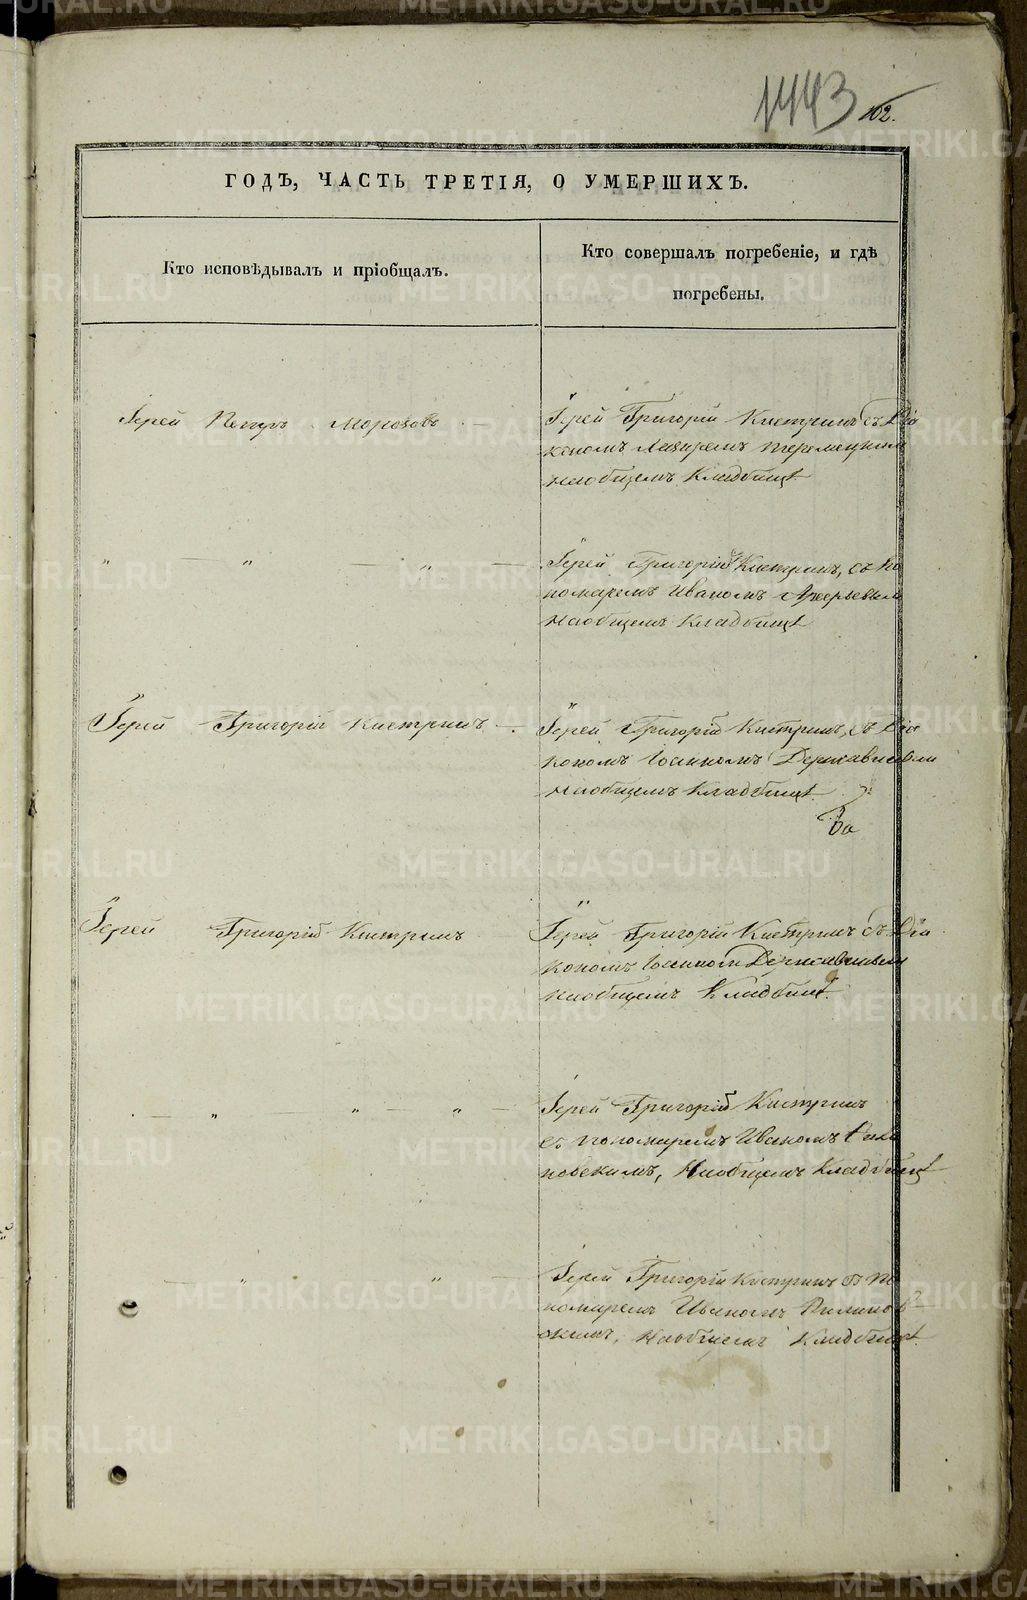 1443 102.
ГОДЪ, ЧАСТЬ ТРЕТІЯ, О УМЕРШИХЪ.
Кто исповѣдывалъ и пріобщалъ.
Кто совершалъ погребеніе, и гдѣ
погребены.
Іерей Петръ Морозовъ —
Іерей Григорій Кистринъ съ Діа
кономъ
на общемъ Кладбищѣ
" — " — " —
Іерей Григорій Кистринъ, съ По
номаремъ Иваномъ
на общемъ Кладбищѣ
Іерей Григорій Кистринъ —.
Іерей Григорій Кистринъ, съ Діа
кономъ Іоанномъ Державинымъ
на общемъ Кладбищѣ.
Іерей Григорій Кистринъ
Іерей Григорій Кистринъ съ Діа
кономъ Іоанномъ Державинымъ
на общемъ Кладбищѣ.
— " " — " —
Іерей Григорій Кистринъ
съ пономаремъ Иваномъ
новскимъ, На общемъ Кладбищѣ
— " " —
Іерей Григорій Кистринъ съ По
номаремъ Иваномъ
скимъ, На общемъ Кладбищѣ.
METRIKI.GASO-URAL.RU